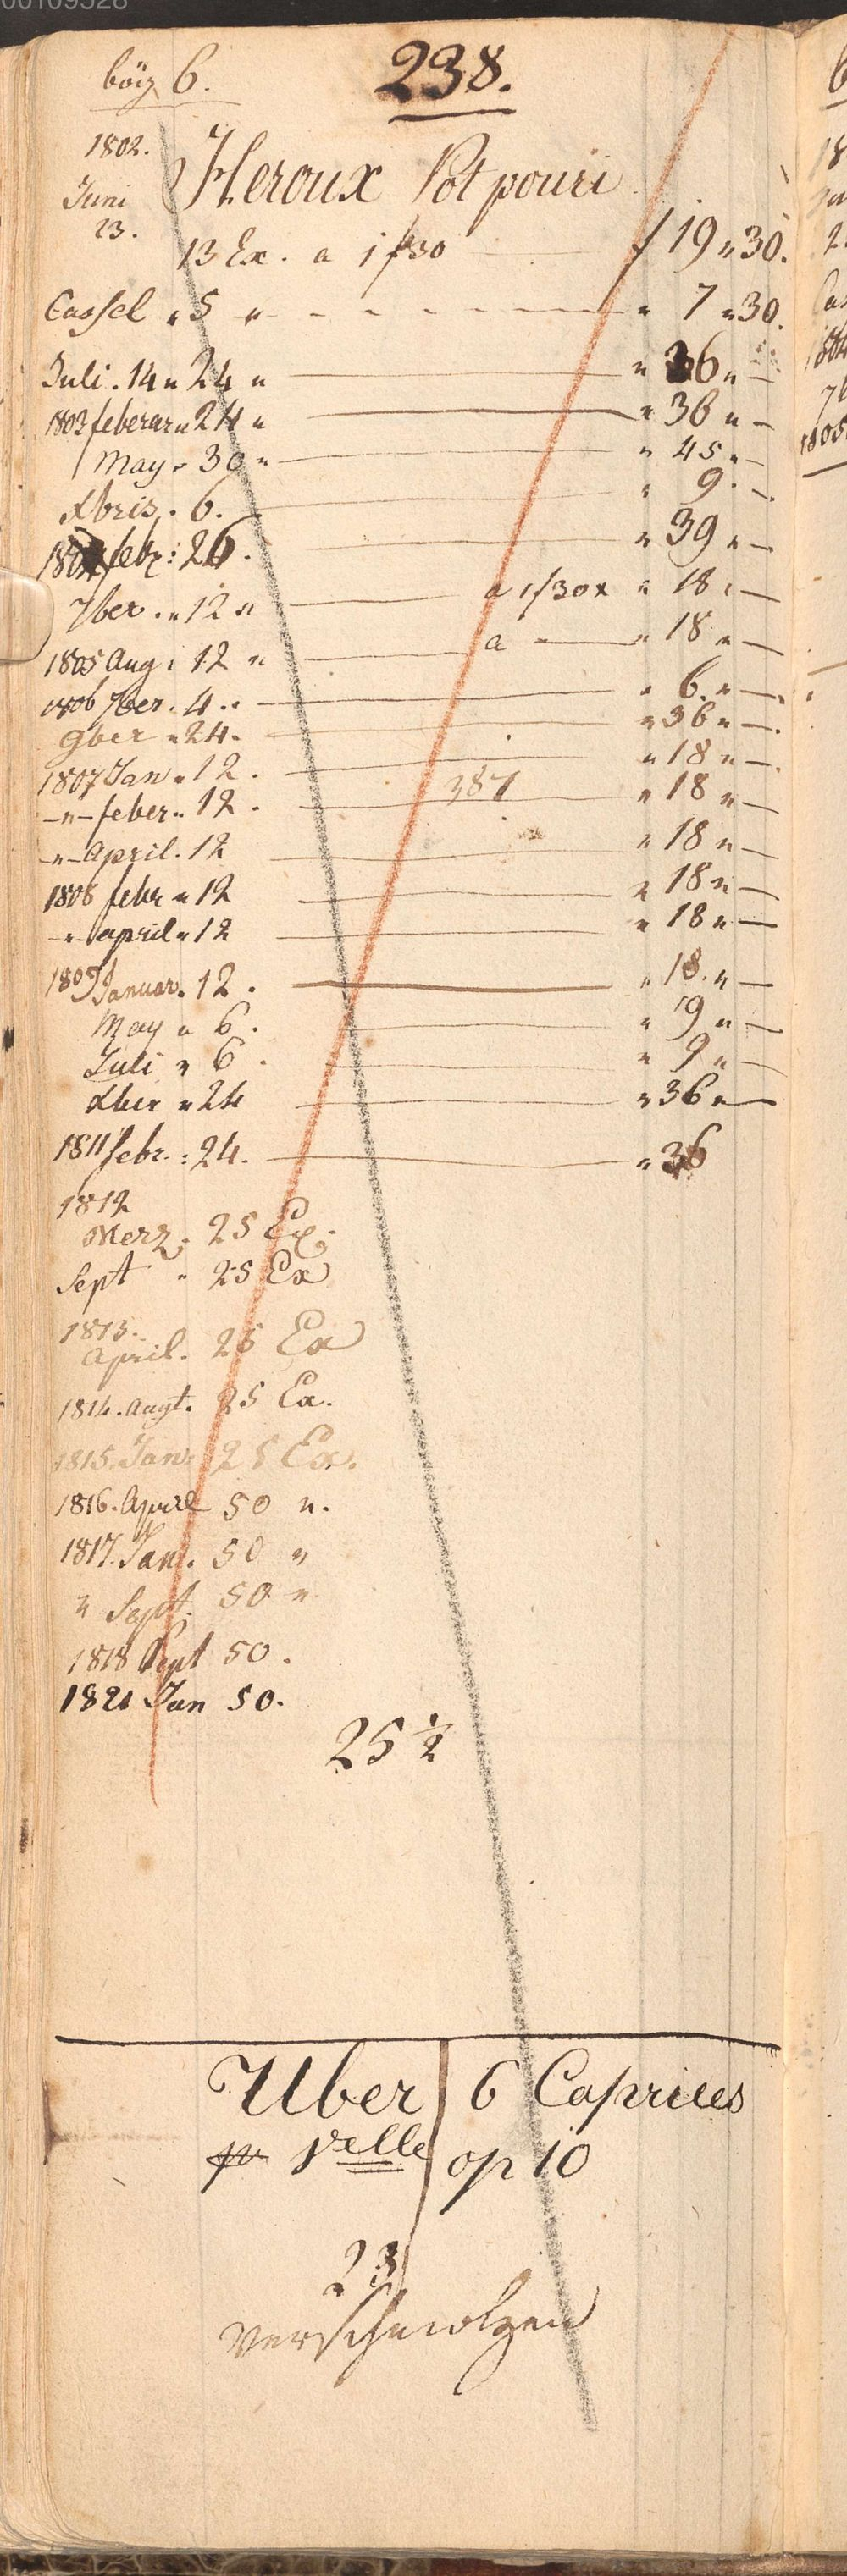 böig 6.
238.
1802.
Juni
23.
Heroux Pot pouri
13 Ex. a 1 f 30 f 19 " 30.
Cassel " 5 " " 7 " 30.
Juli. 14 " 24 " " 36 " —
1803 feberar " 24 " " 36 " —
May " 30 " " 45 " —
Xbris. 6. " 9 . —
1804 febr : 26. " 39 " —
7ber . " 12 " a 1f30x " 18 " —
1805 Aug : 12 " a — " 18 " —
1806 7ber . 4 . " " 6. " —
9ber " 24 " " 36 " —
1807 Jan " 12 . " 18 " —
— " — feber " 12 . 387 " 18 " —
— " — April . 12 " 18 " —
1808 febr " 12 " 18 " —
— " — april " 12 " 18 " —
1809 Januar . 12 . " 18. " —
May " 6 . " 9 " —
Juli " 6 . " 9 " —
Xber " 24 " 36 " —
1811 febr. : 24. " 36
1812
Merz : 25 Ex :
Sept " 25 Ex
1813.
April. 25 Ex
1814. Augt. 25 Ex.
1815. Janr 25 Ex.
1816. April 50 ".
1817. Jan. 50 "
" Sept. 50 "
1818 Sept 50 .
1821 Jan 50.
25 1/2
Uber 6 Caprices
pr Velle op 10
23
verschmolzen